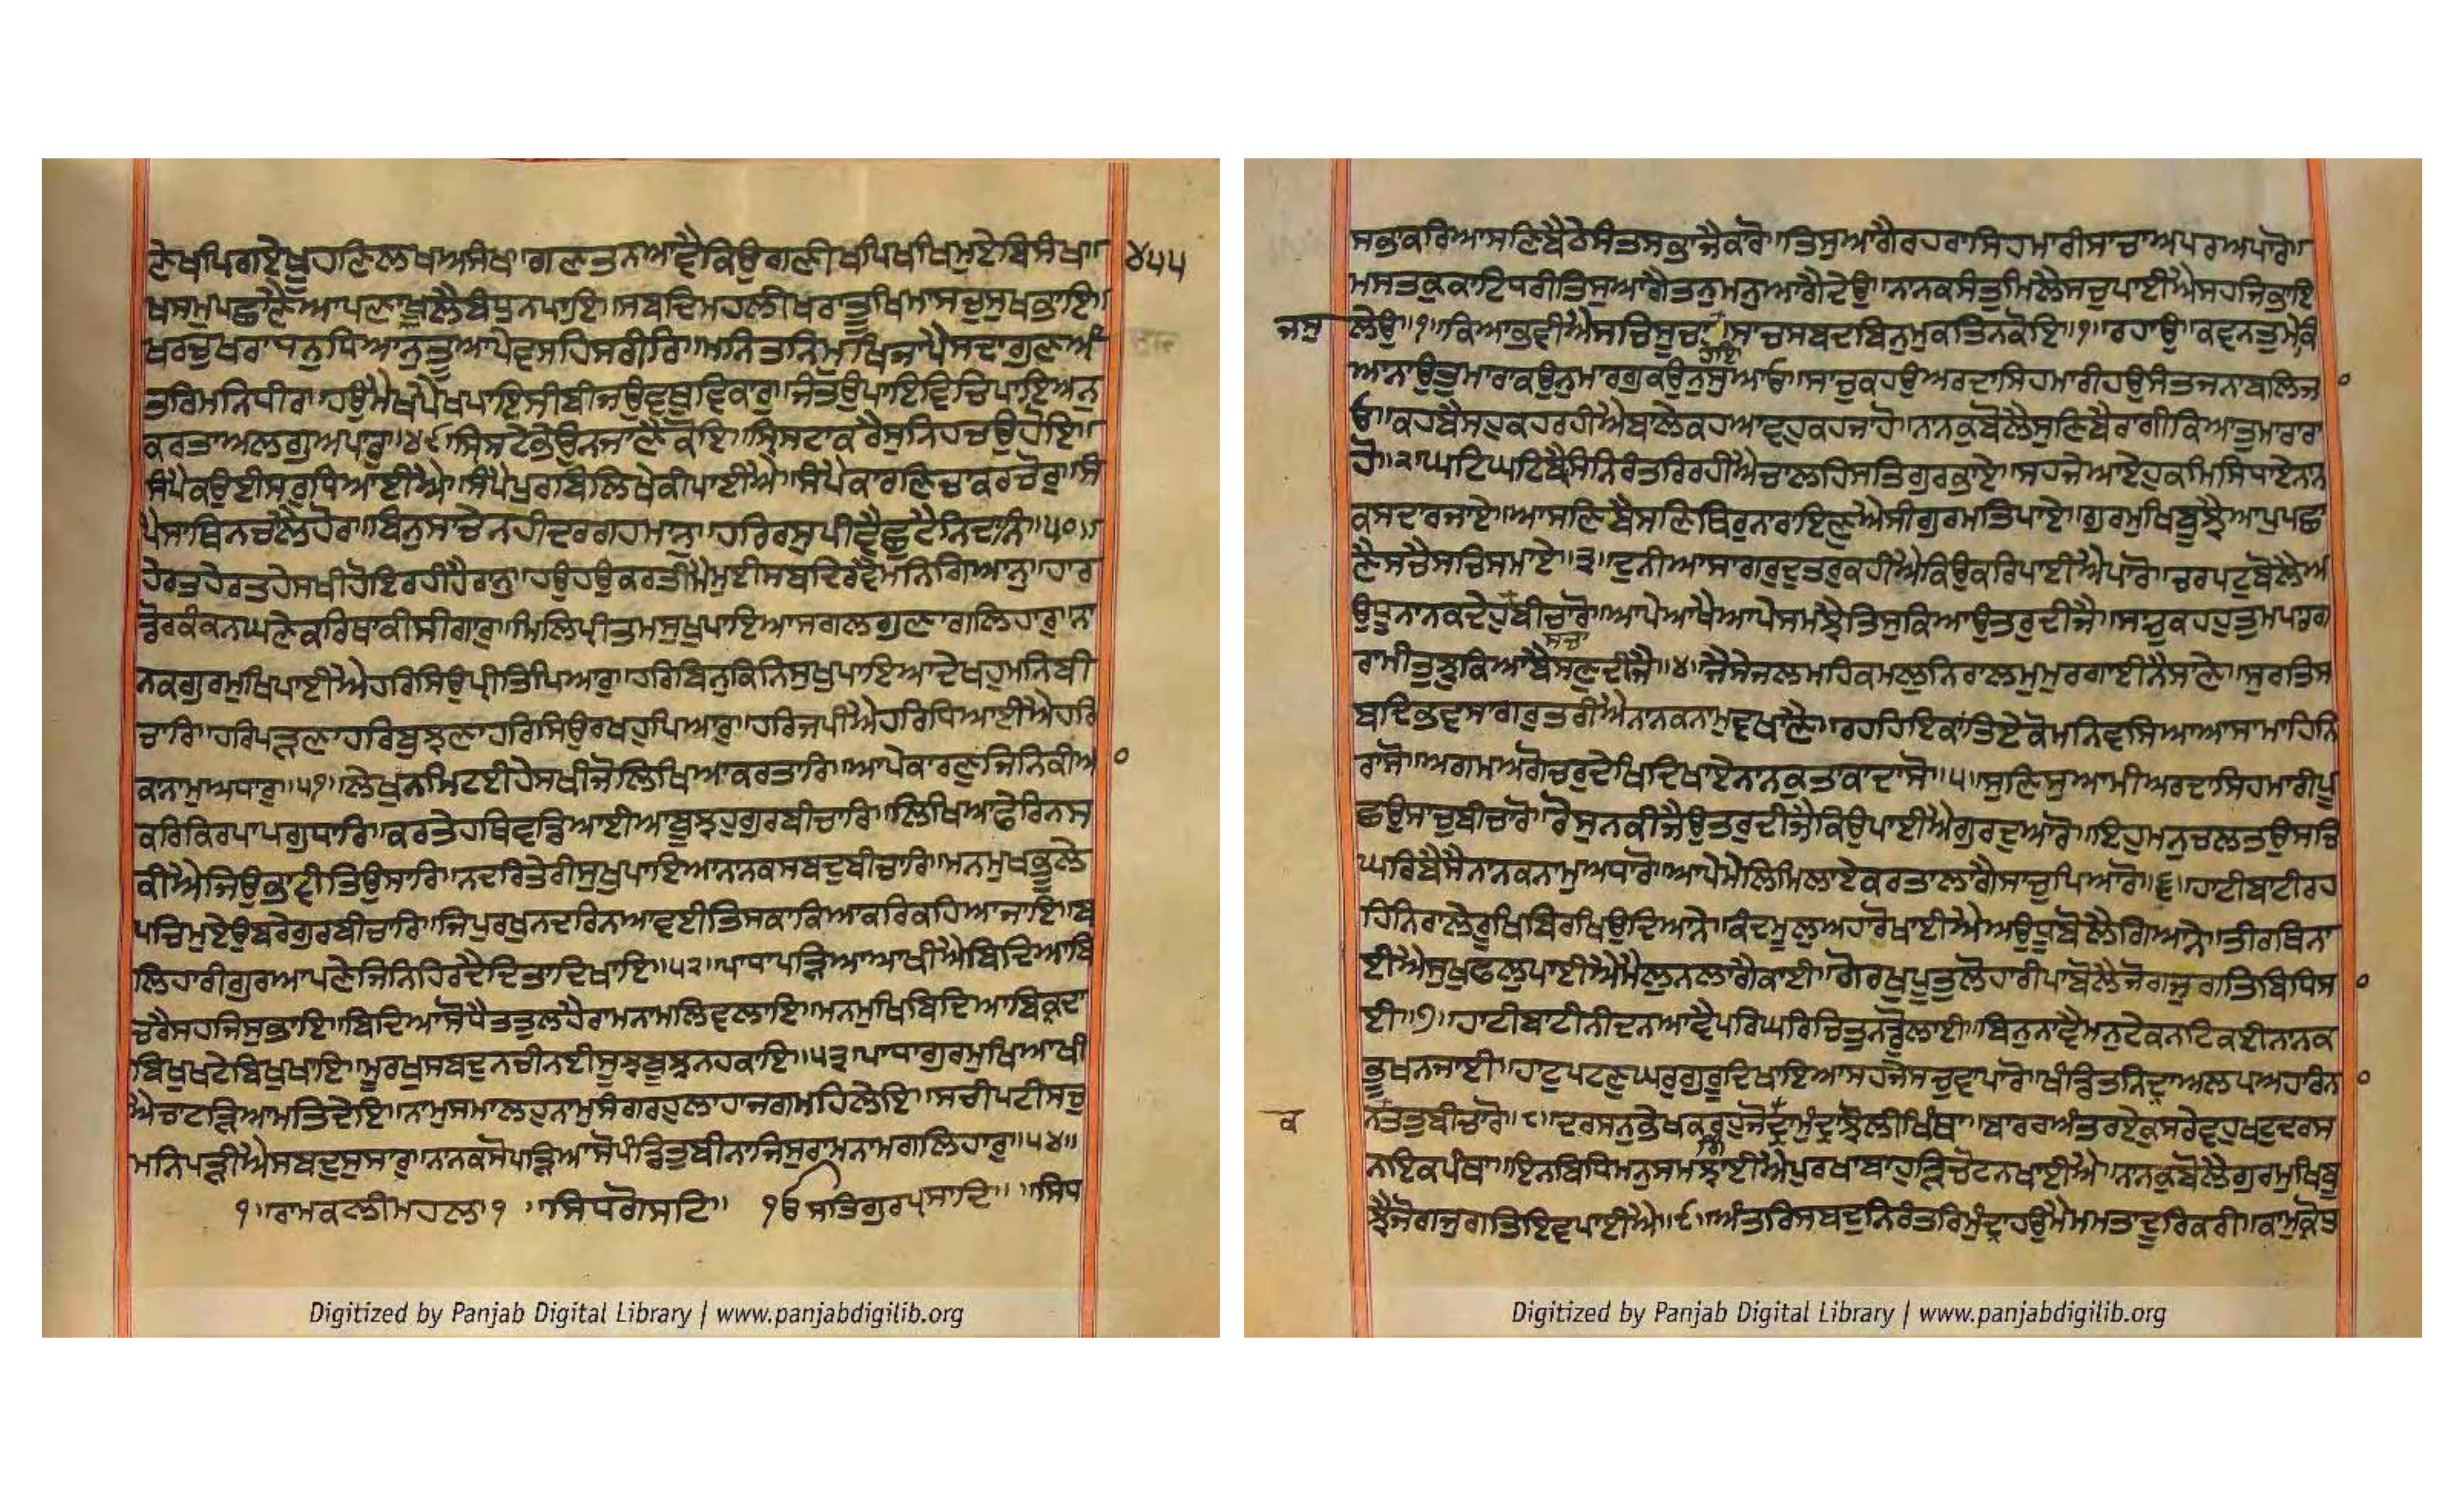 ਲੇਖਪਿਗਏਖੂਹਣਿਲਖਅਸੰਖ॥ਗਣਤਨਆਵੈਕਿਉਗਣੀਖਪਿਖਪਿਮੁਏਬਿਸੰਖ॥ ੪੫੫
ਖਸਮੁਪਛਾਣੈਆਪਣਾਖੂਲੈਬੰਧੁਨਪਾਇ॥ਸਬਦਿਮਹਲੀਖਰਾਤੂਖਿਮਾਸਚੁਸੁਖਭਾਇ॥
ਖਰਚੁਖਰਾਧਨੁਧਿਆਨੁਤੂਆਪੇਵਸਹਿਸਰੀਰਿ॥ਮਨਿਤਨਿਮੁਖਿਜਾਪੈਸਦਾਗੁਣਅੰ
ਤਰਿਮਨਿਧੀਰ॥ਹਉਮੈਖਪੈਖਪਾਇਸੀਬੀਜਉਵਥੁਵਿਕਾਰੁ॥ਜੰਤਉਪਾਇਵਿਚਿਪਾਇਅਨੁ
ਕਰਤਾਅਲਗੁਅਪਾਰੁ॥੪੯॥ਸ੍ਰਿਸਟੇਭੇਉਨਜਾਣੈਕੋਇ॥ਸ੍ਰਿਸਟਾਕਰੈਸੁਨਿਹਚਉਹੋਇ॥
ਸੰਪੈਕਉਈਸਰੁਧਿਆਈਐ॥ਸੰਪੈਪੁਰਬਿਲਿਖੇਕੀਪਾਈਐ॥ਸੰਪੈਕਾਰਣਿਚਾਕਰਚੋਰ॥ਸੰ
ਪੈਸਾਥਿਨਚਾਲੈਹੋਰ॥ਬਿਨੁਸਾਚੇਨਹੀਦਰਗਹਮਾਨੁ॥ਹਰਿਰਸੁਪੀਵੈਛੁਟੈਨਿਦਾਨਿ॥੫੦॥
ਹੇਰਤਹੇਰਤਹੇਸਖੀਹੋਇਰਹੀਹੈਰਾਨੁ॥ਹਉਹਉਕਰਤੀਮੈਮੁਈਸਬਦਿਰਵੈਮਨਿਗਿਆਨੁ॥ਹਾਰ
ਡੋਰਕੰਕਨਘਣੇਕਰਿਥਾਕੀਸੀਗਾਰੁ॥ਮਿਲਿਪ੍ਰੀਤਮਸੁਖੁਪਾਇਆਸਗਲਗੁਣਾਗਲਿਹਾਰੁ॥ਨਾ
ਨਕਗੁਰਮੁਖਿਪਾਈਐਹਰਿਸਿਉਪ੍ਰੀਤਿਪਿਆਰੁ॥ਹਰਿਬਿਨੁਕਿਨਿਸੁਖੁਪਾਇਆਦੇਖਹੁਮਨਿਬੀ
ਚਾਰਿ॥ਹਰਿਪੜ੍ਹਣਾਹਰਿਬੁਝਣਾਹਰਿਸਿਉਰਖਹੁਪਿਆਰੁ॥ਹਰਿਜਪੀਐਹਰਿਧਿਆਈਐਹਰਿ
ਕਨਾਮੁਅਧਾਰੁ॥੫੧॥ਲੇਖੁਨਮਿਟਈਹੇਸਖੀਜੋਲਿਖਿਆਕਰਤਾਰਿ॥ਆਪੇਕਾਰਣੁਜਿਨਿਕੀਆ
ਕਰਿਕਿਰਪਾਪਗੁਧਾਰਿ॥ਕਰਤੇਹਥਿਵਡਿਆਈਆਬੂਝਹੁਗੁਰਬੀਚਾਰਿ॥ਲਿਖਿਆਫੇਰਿਨਸ
ਕੀਐਜਿਉਭਾਵੀਤਿਉਸਾਰਿ॥ਨਦਰਿਤੇਰੀਸੁਖੁਪਾਇਆਨਾਨਕਸਬਦੁਬੀਚਾਰਿ॥ਮਨਮੁਖਭੂਲੇ
ਪਚਿਮੁਏਉਬਰੇਗੁਰਬੀਚਾਰਿ॥ਜਿਪੁਰਖੁਨਦਰਿਨਆਵਈਤਿਸਕਾਕਿਆਕਰਿਕਹਿਆਜਾਇ॥ਬ
ਲਿਹਾਰੀਗੁਰਆਪਣੇਜਿਨਿਹਿਰਦੈਦਿਤਾਦਿਖਾਇ॥੫੨॥ਪਾਧਾਪੜ੍ਹਿਆਆਖੀਐਬਿਦਿਆਬਿ
ਚਰੈਸਹਜਿਸੁਭਾਇ॥ਬਿਦਿਆਸੋਧੈਤਤੁਲਹੈਰਾਮਨਾਮਲਿਵਲਾਇ॥ਮਨਮੁਖਿਬਿਦਿਆਬਿਕ੍ਰਦਾ
ਬਿਖੁਖਟੇਬਿਖੁਖਾਇ॥ਮੂਰਖੁਸਬਦੁਨਚੀਨਈਸੂਝਬੂਝਨਹਕਾਇ॥੫੩॥ਪਾਧਾਗੁਰਮੁਖਿਆਖੀ
ਐਚਾਟੜਿਆਮਤਿਦੇਇ॥ਨਾਮੁਸਮਾਲਹੁਨਾਮੁਸੰਗਰਹੁਲਾਹਾਜਗਮਹਿਲੇਇ॥ਸਚੀਪਟੀਸਚੁ
ਮਨਿਪੜ੍ਹੀਐਸਬਦੁਸੁਸਾਰੁ॥ਨਾਨਕਸੋਪੜ੍ਹਿਆਸੋਪੰਡਿਤੁਬੀਨਾਜਿਸੁਰਾਮਨਾਮਗਲਿਹਾਰੁ॥੫੪॥
੧॥ਰਾਮਕਲੀਮਹਲਾ੧ ॥ਸਿਧਗੋਸਟਿ॥ ੴਸਤਿਗੁਰਪ੍ਰਸਾਦਿ॥ ॥ਸਿਧ
Digitized by Panjab Digital Library | www.panjabdigilib.org
ਸਭਾਕਰਿਆਸਣਿਬੈਠੇਸੰਤਸਭਾਜੈਕਾਰੋ॥ਤਿਸੁਆਗੈਰਹਰਾਸਿਹਮਾਰੀਸਾਚਾਅਪਰਅਪਾਰੋ॥
ਮਸਤਕੁਕਾਟਿਧਰੀਤਿਸੁਆਗੈਤਨੁਮਨੁਆਗੈਦੇਉ॥ਨਾਨਕਸੰਤੁਮਿਲੈਸਚੁਪਾਈਐਸਹਜਿਭਾਇ
ਜਸੁ ਲੇਉ॥੧॥ਕਿਆਭਵੀਐਸਚਿਸੂਚਾਹੋਇ॥ਸਾਚਸਬਦਬਿਨੁਮੁਕਤਿਨਕੋਇ॥੧॥ਰਹਾਉ॥ਕਵਨਤੁਮੇਕਿ
ਆਨਾਉਤੁਮਾਰਾਕਉਨੁਮਾਰਗੁਕਉਨੁਸੁਆਓ॥ਸਾਚੁਕਹਉਅਰਦਾਸਿਹਮਾਰੀਹਉਸੰਤਜਨਾਬਲਿਜਾ
ਓ॥ਕਹਬੈਸਹੁਕਹਰਹੀਐਬਾਲੇਕਹਆਵਹੁਕਹਜਾਹੋ॥ਨਾਨਕੁਬੋਲੈਸੁਣਿਬੈਰਾਗੀਕਿਆਤੁਮਾਰਾਰਾ
ਹੋ॥੨॥ਘਟਿਘਟਿਬੈਸਿਨਿਰੰਤਰਿਰਹੀਐਚਾਲਹਿਸਤਿਗੁਰਭਾਏ॥ਸਹਜੇਆਏਹੁਕਮਿਸਿਧਾਏਨਾਨ
ਕਸਦਾਰਜਾਏ॥ਆਸਣਿਬੈਸਣਿਥਿਰੁਨਾਰਾਇਣੁਐਸੀਗੁਰਮਤਿਪਾਏ॥ਗੁਰਮੁਖਿਬੂਝੈਆਪੁਪਛਾ
ਣੈਸਚੇਸਚਿਸਮਾਏ॥੩॥ਦੁਨੀਆਸਾਗਰੁਦੁਤਰੁਕਹੀਐਕਿਉਕਰਿਪਾਈਐਪਾਰੋ॥ਚਰਪਟੁਬੋਲੈਅ
ਉਧੂਨਾਨਕਦੇਹੁਬੀਚਾਰੋ॥ਆਪੇਆਖੈਆਪੇਸਮਝੈਤਿਸੁਕਿਆਉਤਰੁਦੀਜੈ॥ਸਾਚੁਕਹਹੁਤੁਮਪਾਰਗ
ਰਾਮੀਤੁਝੁਕਿਆਬੈਸਣੁਦੀਜੈ॥੪॥ਜੈਸੇਜਲਮਹਿਕਮਲੁਨਿਰਾਲਮੁਮੁਰਗਾਈਨੈਸਾਣੇ॥ਸੁਰਤਿਸ
ਬਦਿਭਵਸਾਗਰੁਤਰੀਐਨਾਨਕਨਾਮੁਵਖਾਣੈ॥ਰਹਹਿਇਕਾਂਤਿਏਕੋਮਨਿਵਸਿਆਆਸਾਮਾਹਿਨਿ
ਰਾਸੋ॥ਅਗਮਅਗੋਚਰੁਦੇਖਿਦਿਖਾਏਨਾਨਕੁਤਾਕਾਦਾਸੋ॥੫॥ਸੁਣਿਸੁਆਮੀਅਰਦਾਸਿਹਮਾਰੀਪੂ
ਛਉਸਾਚੁਬੀਚਾਰੋ॥ਰੋਸੁਨਕੀਜੈਉਤਰੁਦੀਜੈਕਿਉਪਾਈਐਗੁਰਦੁਆਰੋ॥ਇਹੁਮਨੁਚਲਤਉਸਚ
ਘਰਿਬੈਸੈਨਾਨਕਨਾਮੁਅਧਾਰੋ॥ਆਪੇਮੇਲਿਮਿਲਾਏਕਰਤਾਲਾਗੈਸਾਚੁਪਿਆਰੋ॥੬॥ਹਾਟੀਬਾਟੀਰਹ
ਹਿਨਿਰਾਲੇਰੂਖਿਬਿਰਖਿਉਦਿਆਨੇ॥ਕੰਦਮੂਲੁਅਹਾਰੋਖਾਈਐਅਉਧੂਬੋਲੈਗਿਆਨੇ॥ਤੀਰਥਿਨਾ
ਈਐਸੁਖੁਫਲੁਪਾਈਐਮੈਲੁਨਲਾਗੈਕਾਈ॥ਗੋਰਖਪੂਤੁਲੋਹਾਰੀਪਾਬੋਲੈਜੋਗਜੁਗਤਿਬਿਧਿਸਾ
ਈ॥੭॥ਹਾਟੀਬਾਟੀਨੀਦਨਆਵੈਪਰਿਘਰਿਚਿਤੁਨਡੁੋਲਾਈ॥ਬਿਨੁਨਾਵੈਮਨੁਟੇਕਨਟਿਕਈਨਾਨਕ
ਭੂਖਨਜਾਈ॥ਹਾਟੁਪਟਣੁਘਰੁਗੁਰੂਦਿਖਾਇਆਸਹਜੇਸਚੁਵਾਪਾਰੋ॥ਖੰਡਿਤਨਿਦ੍ਰਾਅਲਪਅਹਾਰੰਨਾ
ਨਤਤੁਬੀਚਾਰੋ॥੮॥ਦਰਸਨੁਭੇਖਕਰਹੁਜੋਗਿੰਦ੍ਰਾਮੁੰਦ੍ਰਾਝੋਲੀਖਿੰਥਾ॥ਬਾਰਹਅੰਤਰਏਕੁਸਰੇਵਹੁਖਟੁਦਰਸ
ਕ
ਨਇਕਪੰਥਾ॥ਇਨਬਿਧਿਮਨੁਸਮਝਾਈਐਪੁਰਖਾਬਾਹੁੜਿਚੋਟਨਖਾਈਐ॥ਨਾਨਕੁਬੋਲੈਗੁਰਮੁਖਿਬੂ
ਝੈਜੋਗਜੁਗਤਿਇਵਪਾਈਐ॥੯॥ਅੰਤਰਿਸਬਦੁਨਿਰੰਤਰਿਮੁੰਦ੍ਰਾਹਉਮੈਮਮਤਾਦੂਰਿਕਰੀ॥ਕਾਮੁਕ੍ਰੋਧੁ
Digitized by Panjab Digital Library | www.panjabdigilib.org